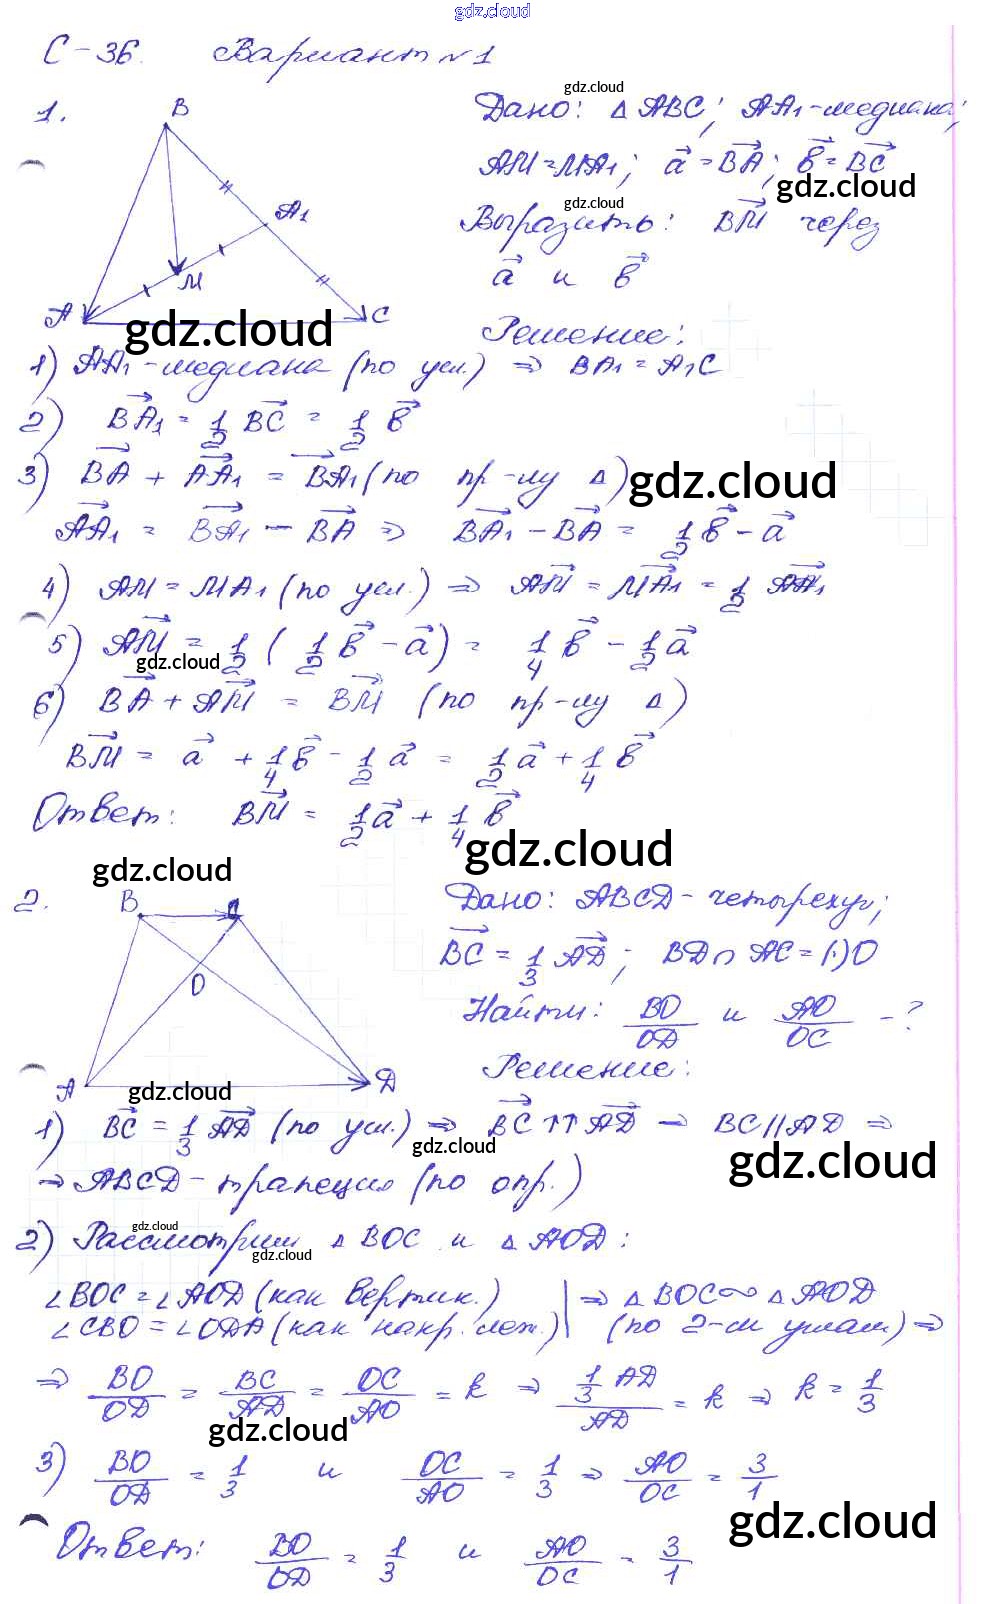 gdz.cloud
С-36. Вариант №1
gdz.cloud
1. Дано: △ABC; AA₁-медиана;
AM=MA₁; a⃗=BA⃗; b⃗=BC⃗
gdz.cloud
gdz.cloud
Выразить: BM⃗ через
a⃗ и b⃗
B
A₁
M
A
C
gdz.cloud
Решение:
1) AA₁-медиана (по усл.) ⇒ BA₁=A₁C
2) BA₁⃗ = 1/2 BC⃗ = 1/2 b⃗
3) BA⃗ + AA₁⃗ = BA₁⃗ (по пр-лу △)
gdz.cloud
AA₁⃗ = BA₁⃗ - BA⃗ ⇒ BA₁⃗ - BA⃗ = 1/2 b⃗ - a⃗
4) AM = MA₁ (по усл.) ⇒ AM⃗ = MA₁⃗ = 1/2 AA₁⃗
5) AM⃗ = 1/2 ( 1/2 b⃗ - a⃗ ) = 1/4 b⃗ - 1/2 a⃗
gdz.cloud
6) BA⃗ + AM⃗ = BM⃗ (по пр-лу △)
BM⃗ = a⃗ + 1/4 b⃗ - 1/2 a⃗ = 1/2 a⃗ + 1/4 b⃗
Ответ: BM⃗ = 1/2 a⃗ + 1/4 b⃗
gdz.cloud
gdz.cloud
2. Дано: ABCD-четырехуг;
BC⃗ = 1/3 AD⃗; BD∩AC=(·)O
Найти: BO/OD и AO/OC -?
B
C
O
A
D
gdz.cloud
Решение:
1) BC⃗ = 1/3 AD⃗ (по усл.) ⇒ BC⃗ ↑↑ AD⃗ → BC∥AD ⇒
gdz.cloud
gdz.cloud
⇒ ABCD-трапеция (по опр.)
gdz.cloud
2) Рассмотрим △BOC и △AOD:
gdz.cloud
∠BOC=∠AOD (как вертик.) | ⇒ △BOC∾△AOD
∠CBO=∠ODA (как накр. леж.) | (по 2-м углам) ⇒
⇒ BO/OD = BC/AD = OC/AO = k ⇒ 1/3 AD/AD = k ⇒ k = 1/3
gdz.cloud
3) BO/OD = 1/3 и OC/AO = 1/3 ⇒ AO/OC = 3/1
gdz.cloud
Ответ: BO/OD = 1/3 и AO/OC = 3/1